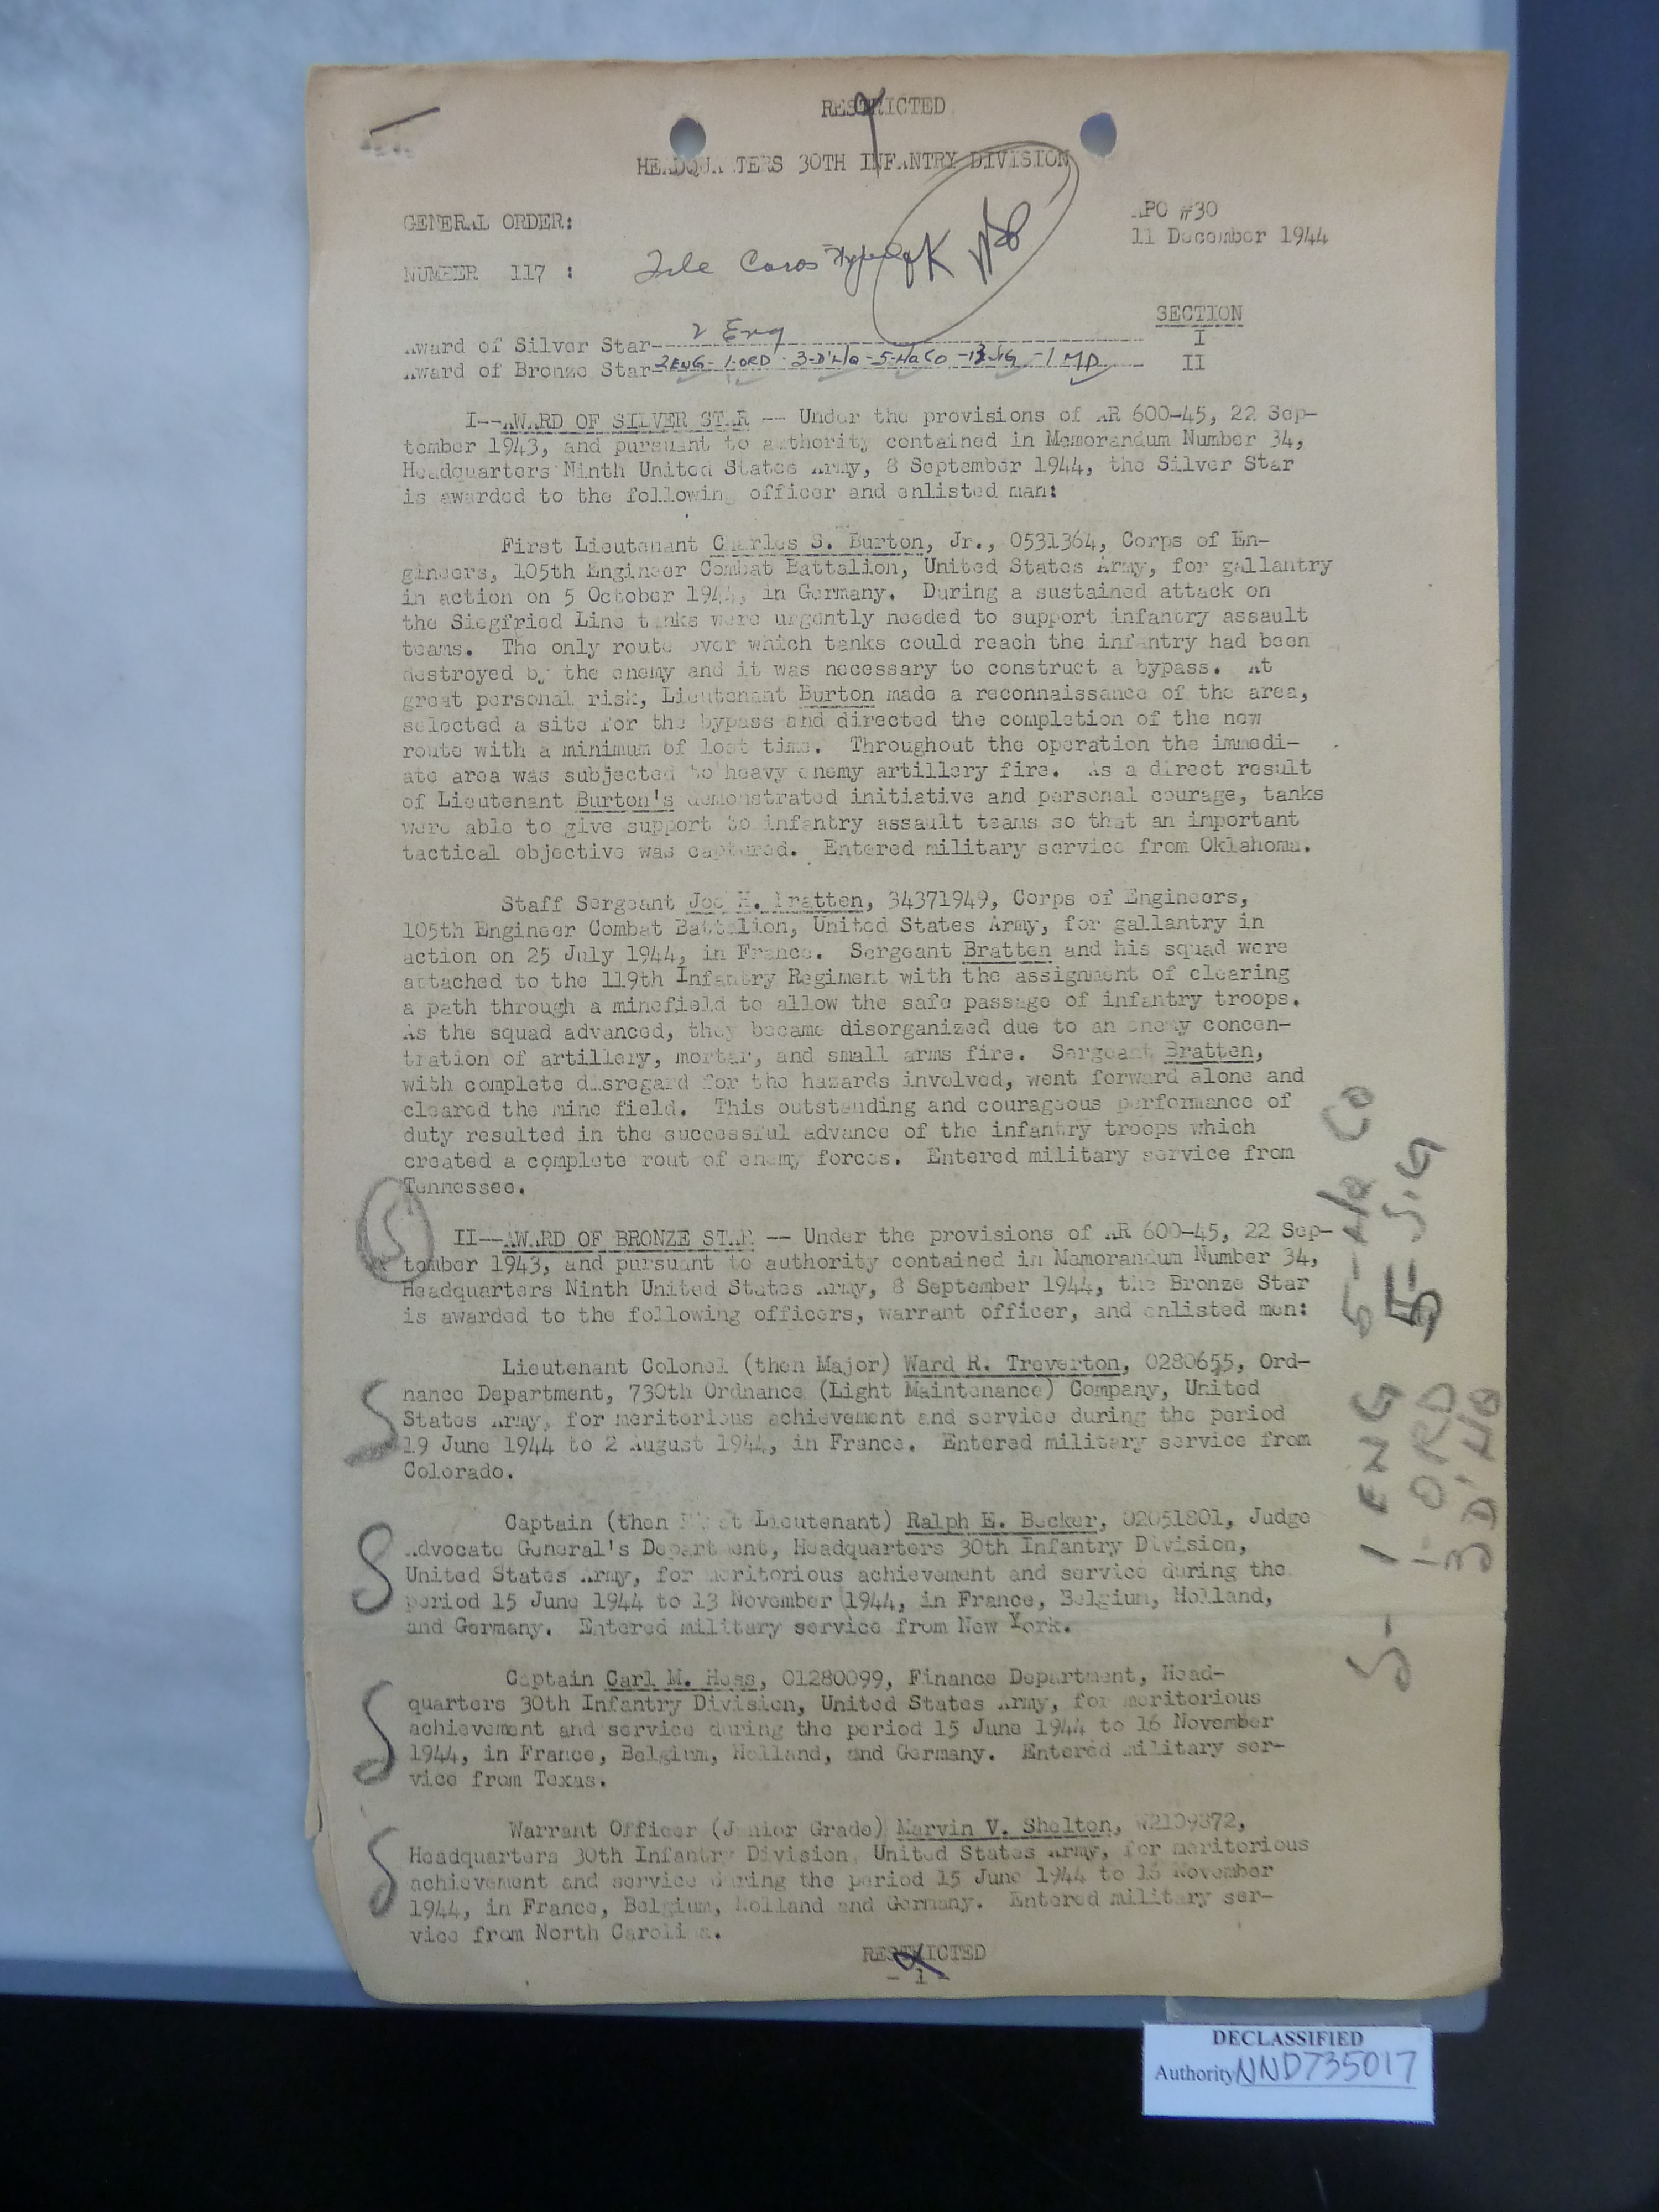 RESTRICTED
HEADQUARTERS 30TH INFANTRY DIVISION
GENERAL ORDER:
APO #30
11 December 1944
NUMBER 117 :
File Cards Typed
OK
SECTION
2 Eng
Award of Silver Star I
2 ENG - 1-ORD - 3-D'HQ - 5-HQ CO - 13 SIG - 1 MP
Award of Bronze Star II
I--AWARD OF SILVER STAR -- Under the provisions of AR 600-45, 22 Sep-
tember 1943, and pursuant to authority contained in Memorandum Number 34,
Headquarters Ninth United States Army, 8 September 1944, the Silver Star
is awarded to the following officer and enlisted man:
First Lieutenant Charles S. Burton, Jr., 0531364, Corps of En-
gineers, 105th Engineer Combat Battalion, United States Army, for gallantry
in action on 5 October 1944, in Germany. During a sustained attack on
the Siegfried Line tanks were urgently needed to support infantry assault
teams. The only route over which tanks could reach the infantry had been
destroyed by the enemy and it was necessary to construct a bypass. At
great personal risk, Lieutenant Burton made a reconnaissance of the area,
selected a site for the bypass and directed the completion of the new
route with a minimum of lost time. Throughout the operation the immedi-
ate area was subjected to heavy enemy artillery fire. As a direct result
of Lieutenant Burton's demonstrated initiative and personal courage, tanks
were able to give support to infantry assault teams so that an important
tactical objective was captured. Entered military service from Oklahoma.
Staff Sergeant Joe H. Bratten, 34371949, Corps of Engineers,
105th Engineer Combat Battalion, United States Army, for gallantry in
action on 25 July 1944, in France. Sergeant Bratten and his squad were
attached to the 119th Infantry Regiment with the assignment of clearing
a path through a minefield to allow the safe passage of infantry troops.
As the squad advanced, they became disorganized due to an enemy concen-
tration of artillery, mortar, and small arms fire. Sergeant Bratten,
with complete disregard for the hazards involved, went forward alone and
cleared the mine field. This outstanding and courageous performance of
duty resulted in the successful advance of the infantry troops which
created a complete rout of enemy forces. Entered military service from
Tennessee.
S
II--AWARD OF BRONZE STAR -- Under the provisions of AR 600-45, 22 Sep-
tember 1943, and pursuant to authority contained in Memorandum Number 34,
Headquarters Ninth United States Army, 8 September 1944, the Bronze Star
is awarded to the following officers, warrant officer, and enlisted men:
S
Lieutenant Colonel (then Major) Ward R. Treverton, 0280655, Ord-
nance Department, 730th Ordnance (Light Maintenance) Company, United
States Army, for meritorious achievement and service during the period
19 June 1944 to 2 August 1944, in France. Entered military service from
Colorado.
S
Captain (then First Lieutenant) Ralph E. Becker, 02051801, Judge
Advocate General's Department, Headquarters 30th Infantry Division,
United States Army, for meritorious achievement and service during the
period 15 June 1944 to 13 November 1944, in France, Belgium, Holland,
and Germany. Entered military service from New York.
S
Captain Carl M. Hess, 01280099, Finance Department, Head-
quarters 30th Infantry Division, United States Army, for meritorious
achievement and service during the period 15 June 1944 to 16 November
1944, in France, Belgium, Holland, and Germany. Entered military ser-
vice from Texas.
S
Warrant Officer (Junior Grade) Marvin V. Shelton, W2109872,
Headquarters 30th Infantry Division, United States Army, for meritorious
achievement and service during the period 15 June 1944 to 16 November
1944, in France, Belgium, Holland and Germany. Entered military ser-
vice from North Carolina.
S- 1 ENG 5-HQ CO
1-ORD 5-SIG
3 D'HQ
RESTRICTED
- 1 -
DECLASSIFIED
Authority NND735017